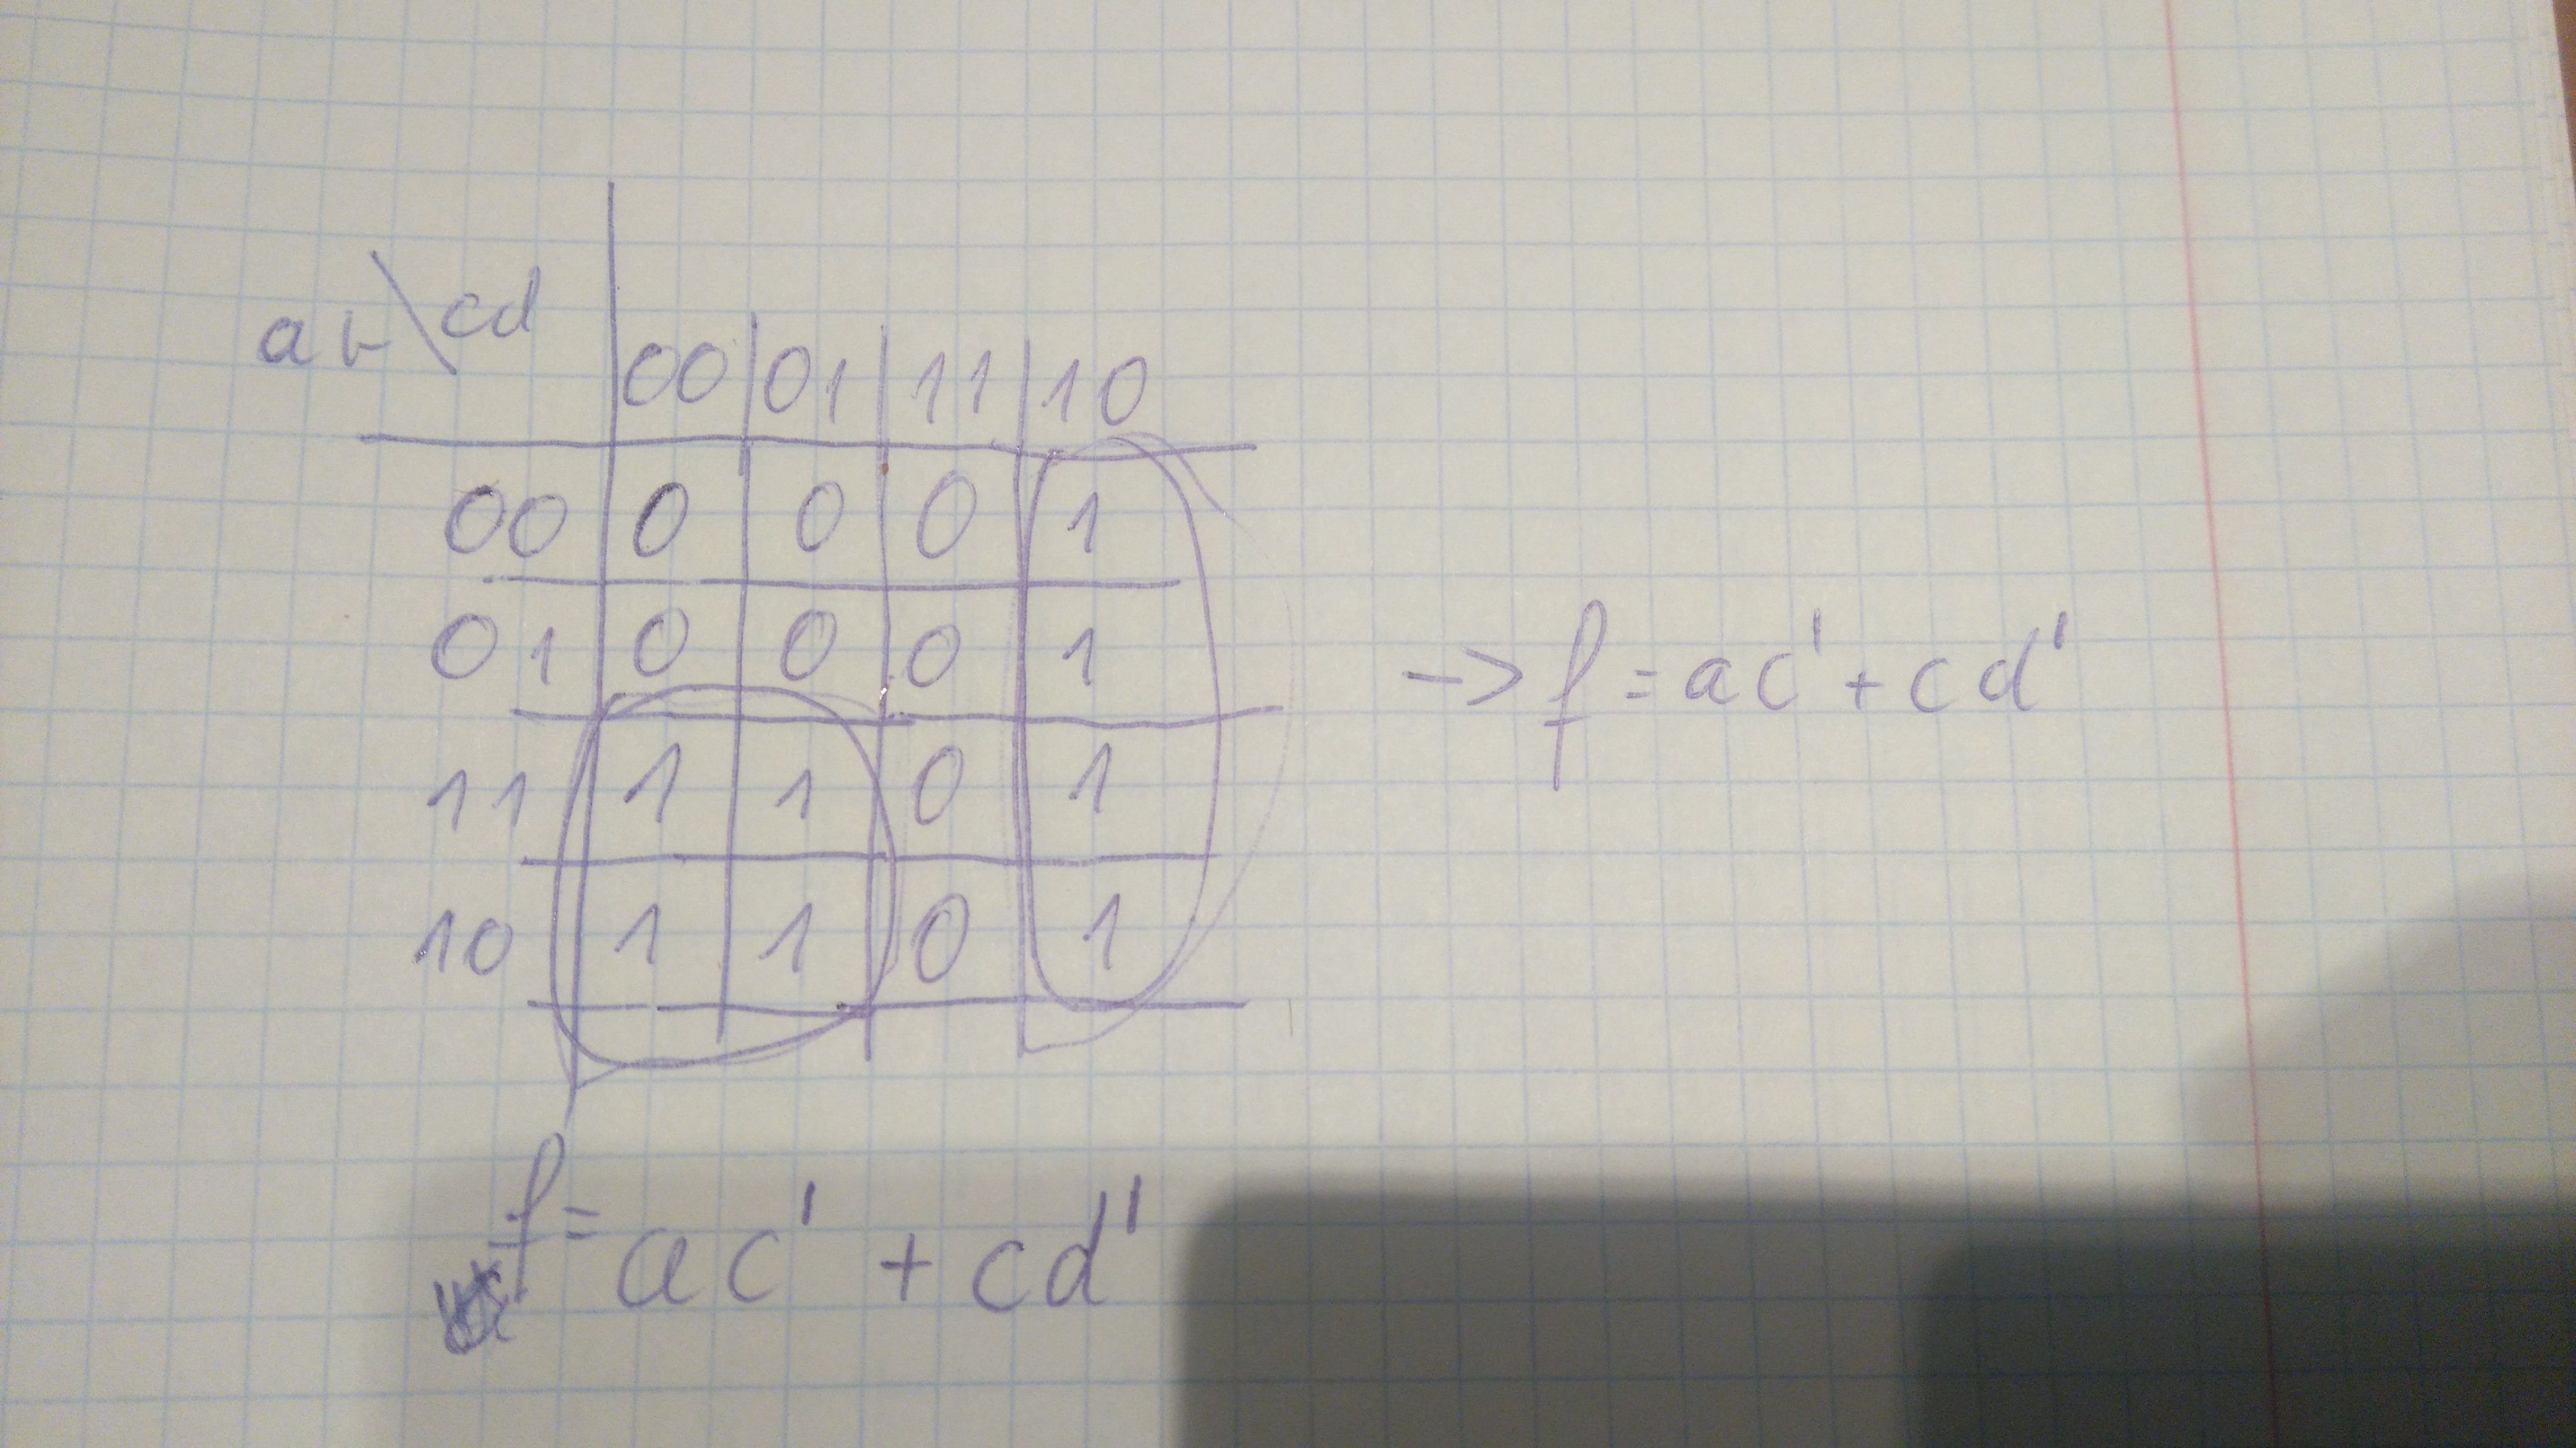 ab\cd 00 01 11 10
00 0 0 0 1
01 0 0 0 1
11 1 1 0 1
10 1 1 0 1
-> f = ac' + cd'
f = ac' + cd'